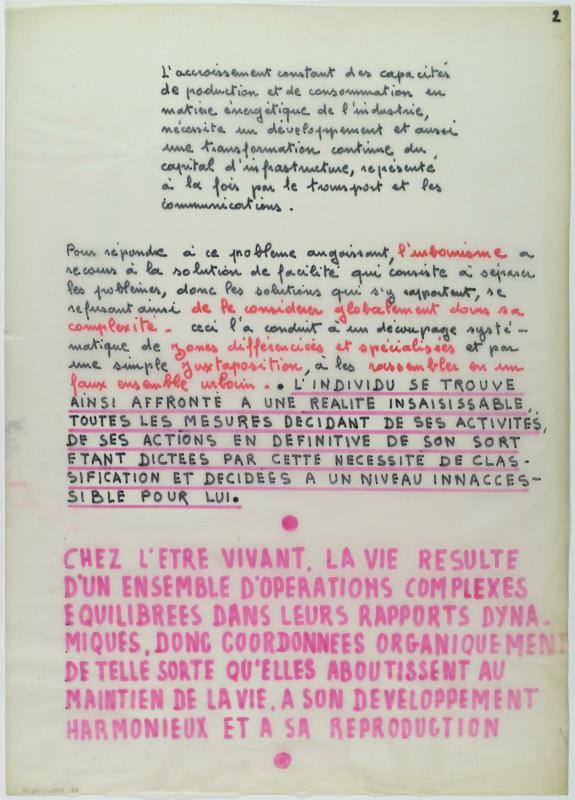 2
L'accroissement constant des capacités
de production et de consommation en
matière énergétique de l'industrie,
nécessite un développement et aussi
une transformation continue du
capital d'infrastructure, représenté
à la fois par le transport et les
communications.
Pour répondre à ce problème angoissant, l'urbanisme a
recours à la solution de facilité qui consiste à séparer
les problèmes, donc les solutions qui s'y rapportent, se
refusant ainsi de le considérer globalement dans sa
complexité - ceci l'a conduit à un découpage systé-
matique de zones différenciées et spécialisées et par
une simple juxtaposition, à les rassembler en un
faux ensemble urbain. • L'INDIVIDU SE TROUVE
AINSI AFFRONTE A UNE REALITE INSAISISSABLE,
TOUTES LES MESURES DECIDANT DE SES ACTIVITES,
DE SES ACTIONS EN DEFINITIVE DE SON SORT
ETANT DICTEES PAR CETTE NECESSITE DE CLAS-
SIFICATION ET DECIDEES A UN NIVEAU INNACCES-
SIBLE POUR LUI.
CHEZ L'ETRE VIVANT, LA VIE RESULTE
D'UN ENSEMBLE D'OPERATIONS COMPLEXES
EQUILIBREES DANS LEURS RAPPORTS DYNA-
MIQUES, DONC COORDONNEES ORGANIQUEMENT
DE TELLE SORTE QU'ELLES ABOUTISSENT AU
MAINTIEN DE LA VIE, A SON DEVELOPPEMENT
HARMONIEUX ET A SA REPRODUCTION